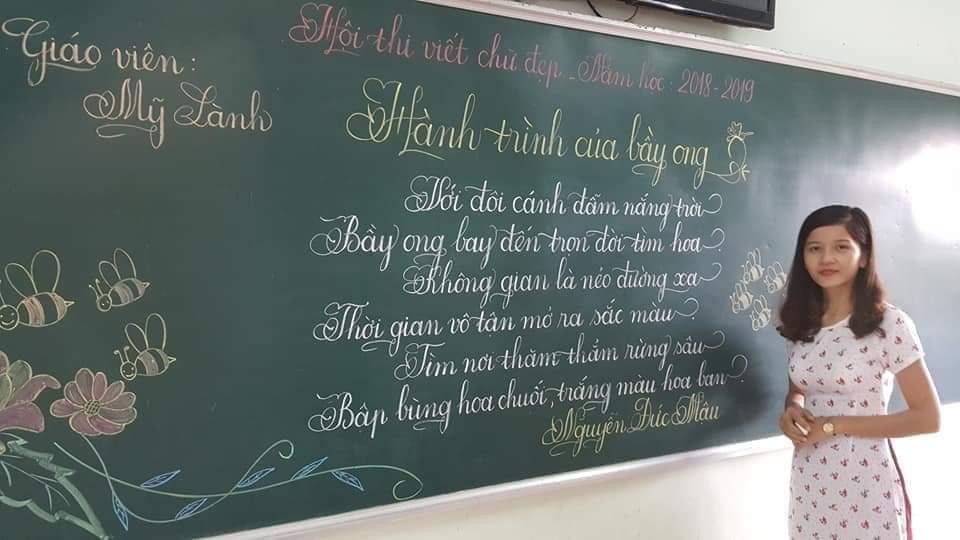 Giáo viên:
Mỹ Lành
Hội thi viết chữ đẹp - Năm học: 2018-2019
Hành trình của bầy ong
Với đôi cánh đẫm nắng trời
Bầy ong bay đến trọn đời tìm hoa.
Không gian là nẻo đường xa
Thời gian vô tận mở ra sắc màu.
Tìm nơi thăm thẳm rừng sâu
Bập bùng hoa chuối, trắng màu hoa ban.
Nguyễn Đức Mậu